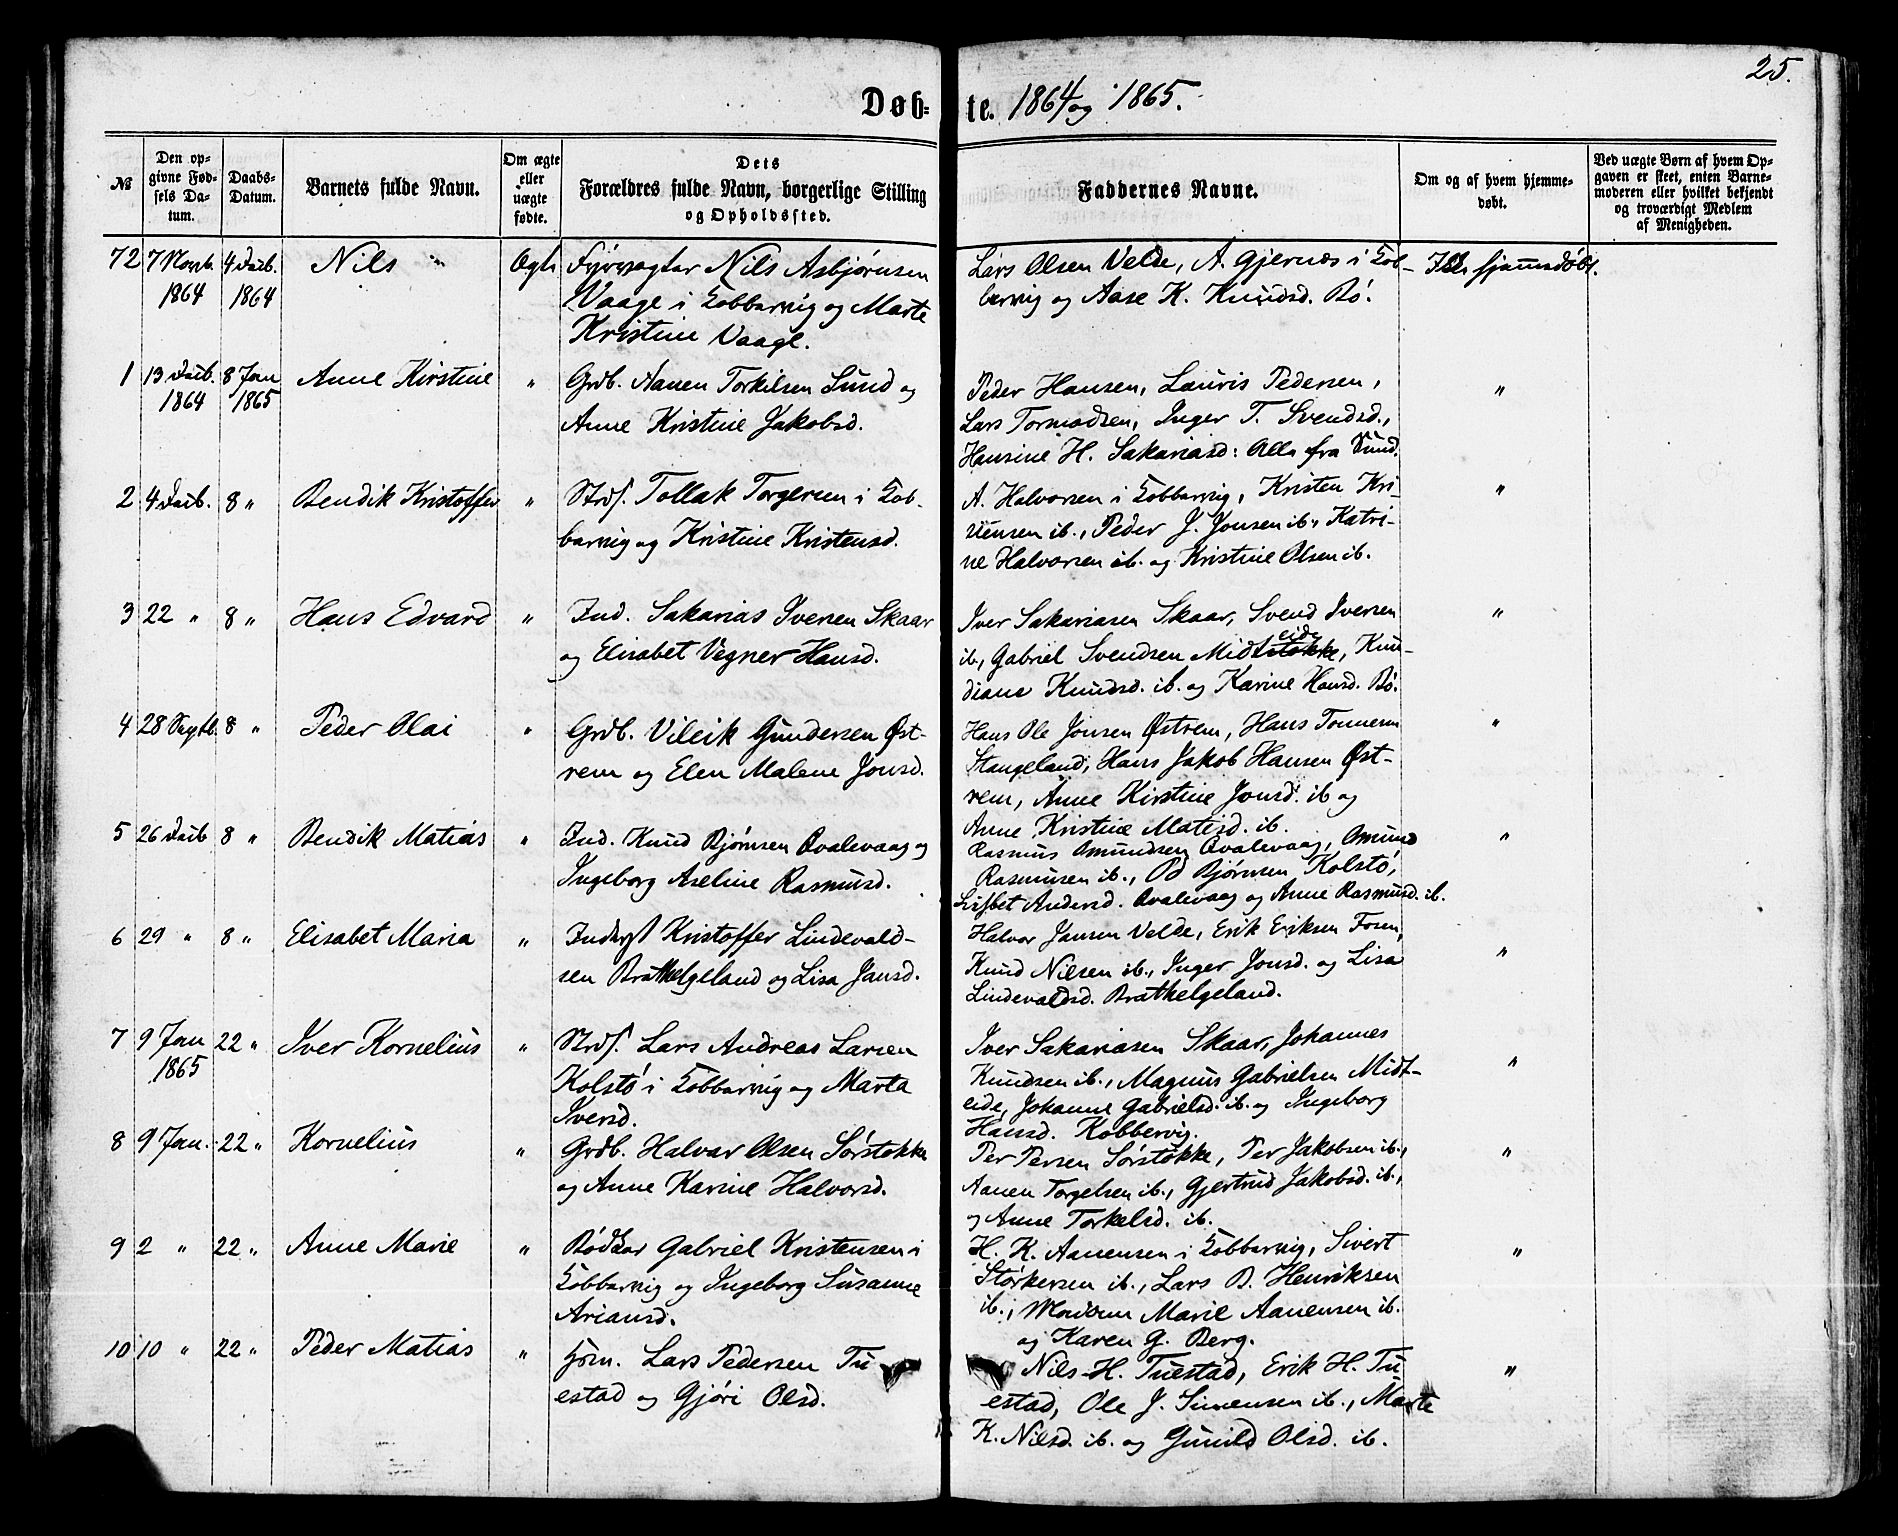 25.
Døb= te. 1864 og 1865.
№
Den op=
givne Fød=
sels Da=
tum.
Daabs=
Datum.
Barnets fulde Navn.
Om ægte
eller
uægte
fødte.
Dets
Forældres fulde Navn, borgerlige Stilling
og Opholdssted.
Faddernes Navne.
Om og af hvem hjemme=
døbt.
Ved uægte Børn af hvem Op=
gaven er skeet, enten Barne=
moderen eller hvilket bekjendt
og troværdigt Medlem
af Menigheden.
72 7 Novb. 4 Decb. Nils " Ægte Fyrvogter Nils Asbjørnsen
1864 1864 Vaage i Kobbervig og Marte
Kristine Vaage.
Lars Olsen Velde, A. Gjernæs i Kob-
bervig og Aase K. Knudsd. Bø.
Ikke hjemmedøbt.
1 13 Decb. 8 Jan Anne Kirstine " Grdb. Aanen Torkilsen Sund og
1864 1865 Anne Kristine Jakobsd.
Peder Hansen, Lauris Pedersen,
Lars Tormodsen, Inger T. Svendsd.,
Hansine H. Sakariasd: Alle fra Sund.
"
2 4 Decb. 8 " Bendik Kristoffer " Strds. Tollak Torgersen i Kob-
bervig og Kristine Kristensd.
A. Halvorsen i Kobbervig, Kristen Kri-
stensen ib., Peder J. Jonsen ib., Katri-
ne Halvorsen ib. og Kristine Olsen ib.
"
3 22 " 8 " Hans Edvard " Ind. Sakarias Iversen Skaar
og Elisabet Vegner Hansd.
Iver Sakariasen Skaar, Svend Iversen
ib, Gabriel Svendsen Midtstokke eide, Knu-
diane Knudsd. ib. og Karine Hansd. Bø.
"
4 28 Septb. 8 " Peder Olai " Grdb. Vileik Gundersen Øst-
rem og Elen Malene Jonsd.
Hans Ole Jonsen Østrem, Hans Tonnesen
Stangeland, Hans Jakob Hansen Øst-
rem, Anne Kirstine Jonsd. ib og
Anne Kristine Matisd. ib.
"
5 26 Decb 8 " Bendik Matias " Ind. Knud Bjørnsen Qvalevaag og
Ingeborg Aseline Rasmusd.
Rasmus Omundsen Qvalevaag, Omund
Rasmusen ib., Od Bjørnsen Kolstø,
Lisbet Andersd. Qvalevaag og Anne Rasmusd. ib.
"
6 29 " 8 " Elisabet Maria " Inderst Kristoffer Lindevald-
sen Brathelgeland og Lisa Jansd.
Halvor Jansen Velde, Erik Eriksen Fosen,
Knud Nilsen ib., Inger Jonsd. og Lisa
Lindevaldsd. Brathelgeland.
"
7 9 Jan 22 " Iver Kornelius " Strds. Lars Andreas Larsen
1865 Kolstø i Kobbervig og Marta
Iversd.
Iver Sakariasen Skaar, Johannes
Knudsen ib., Magnus Gabrielsen Midt-
eide, Johanne Gabrielsd. ib. og Ingeborg
Hansd. Kobbervig.
"
8 9 Jan. 22 " Kornelius " Grdb. Halvar Olsen Sørstokke
og Anne Karine Halvorsd.
Per Persen Sørstokke, Per Jakobsen ib.,
Aanen Torgelsen ib., Gjertrud Jakobsd. ib.,
og Anne Torkelsd. ib.
"
9 2 " 22 " Anne Marie " Bødker Gabriel Kristensen i
Kobbervig og Ingeborg Susanne
Ariansd.
H. K. Aanensen i Kobbervig, Sivert
Størkersen ib., Lars B. Henriksen
ib., Madam Marie Aanensen ib.
og Karen G. Berg.
"
10 10 " 22 " Peder Matias " Lars Pedersen Tu
estad og Gjøri Olsd.
Nils H. Tuestad, Erik H. Tu
estad, Ole J. Simensen ib., Marte
K. Nilsd. ib. og Gunild Olsd. ib.
"